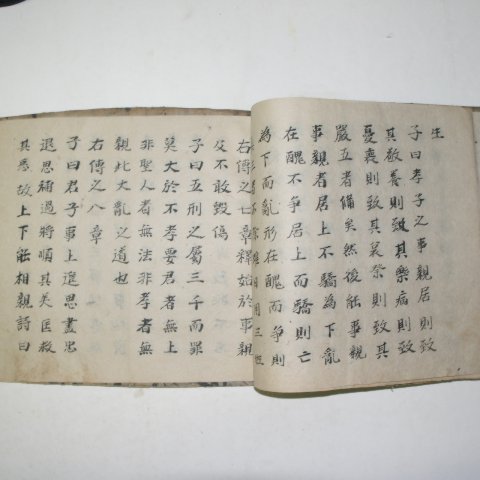 生
子曰孝子之事親居則致
其敬養則致其樂病則致
憂喪則致其哀祭則致其
嚴五者備矣然後能事親
事親者居上不驕為下不亂
在醜不爭居上而驕則亡
為下而亂則形在醜而爭則
右傳之七章釋始於事親
及不敢毀傷
子曰五刑之屬三千而罪
莫大於不孝要君者無上
非聖人者無法非孝者無
親此大亂之道也
右傳之八章
子曰君子事上進思盡忠
退思補過將順其美匡救
其惡故上下能相親詩曰